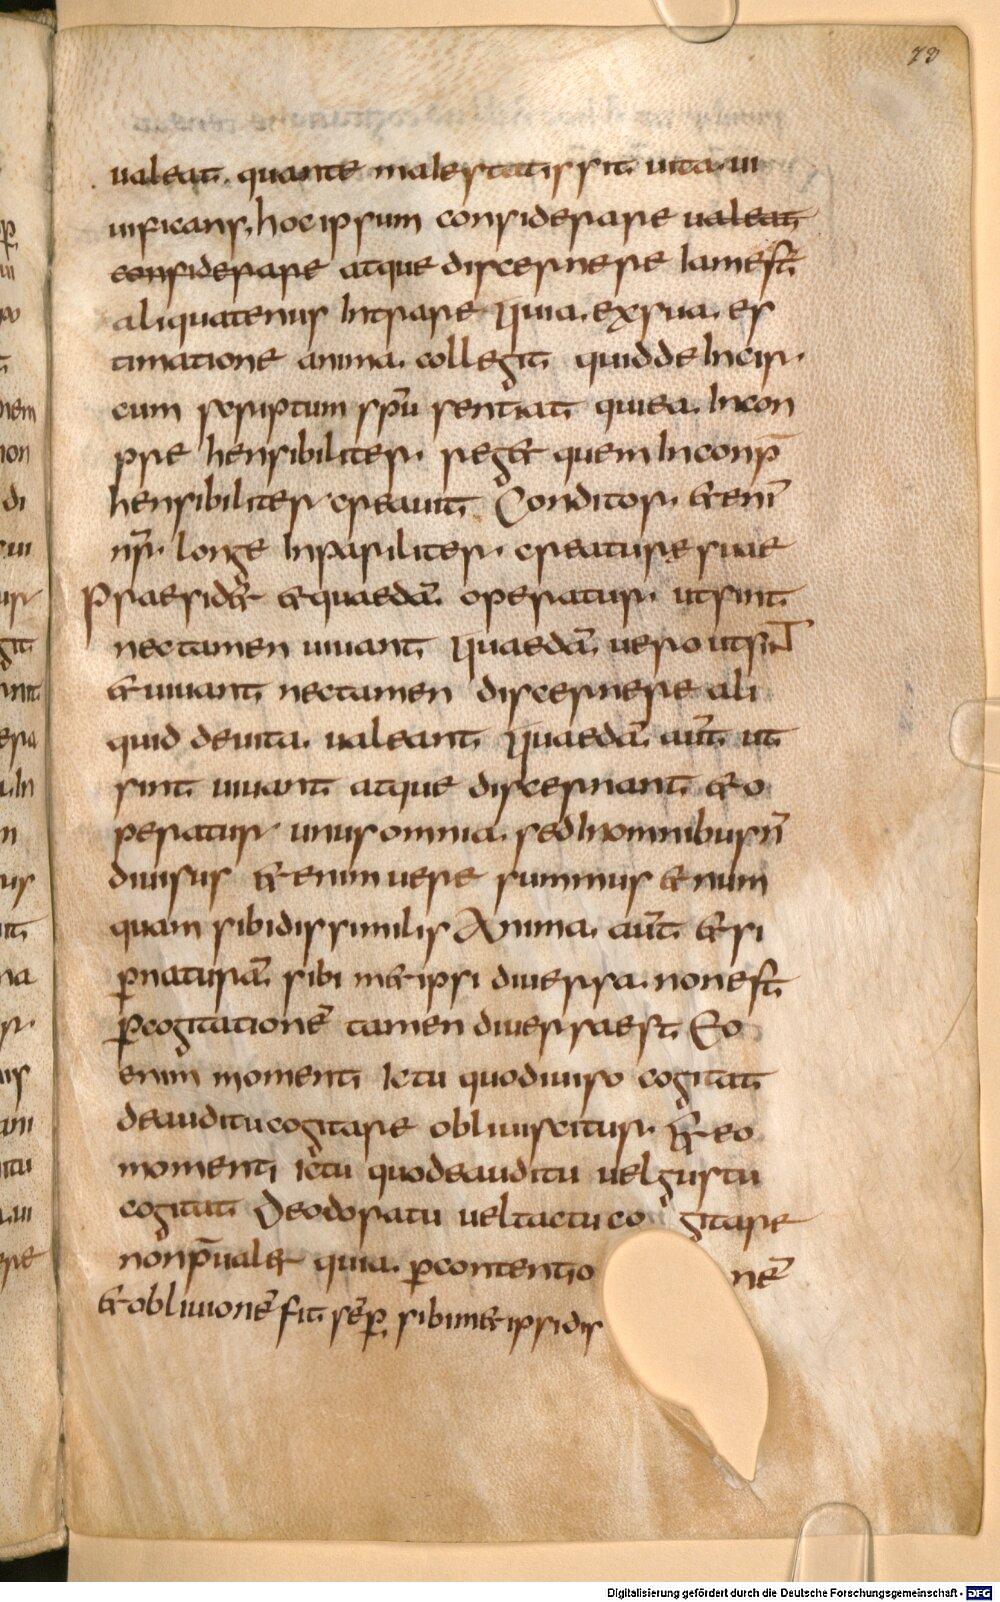 73
ualeat. quante maiestatis sit uita ui
uificans, hoc ipsum considerare ualeat
considerare atque discernere Iam est
aliquatenus Intrare Quia. ex sua. es
timatione anima. collegit quid de Incir
cum scriptum spu sentiat quiea. Incon
prehensibiliter. reget quem Inconp̄
hensibiliter creauit Conditor. eteni
nr̄. longe Inpariliter. creature suae
Praesidet et quaedā operatur. ut sint
nec tamen uiuant Quaedā uero ut sint
et uiuant nec tamen discernere ali
quid de uita. ualeant Quaedā aūt ut
sint uiuant atque discernant et o
peratur unus omnia. sed In omnibus n̄
diuisus Et enim uere summus et num
quam sibi dissimilis Anima. aūt etsi
p naturā sibimet ipsi diuersa. non est
p cogitationē tamen diuersa est Eo
enim momenti Ictu quod uiso cogitat
de auditu cogitare obliuiscitur. Et eo
momenti ictu quo de auditu uel gustu
cogitat De odoratu uel tactu co gitare
non p̄ualet quia. p contentio nē
et obliuionē fit sēp sibimet ipsi dis
Digitalisierung gefördert durch die Deutsche Forschungsgemeinschaft - DFG